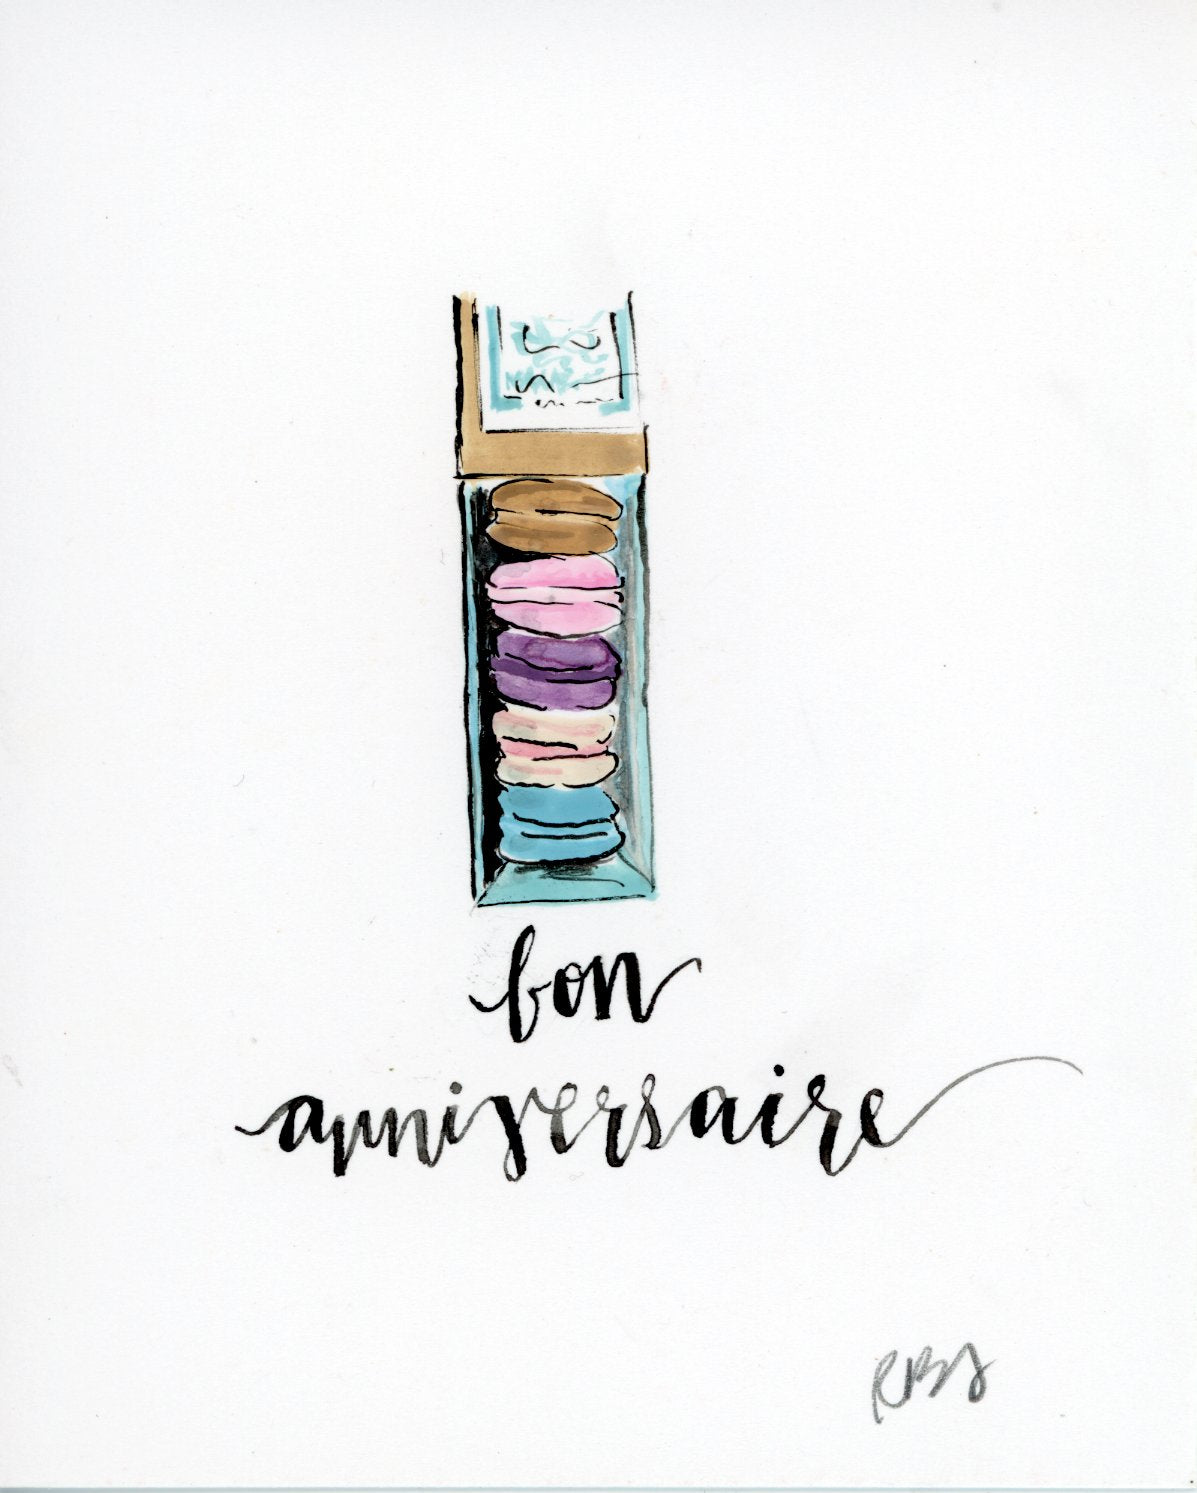 bon
anniversaire